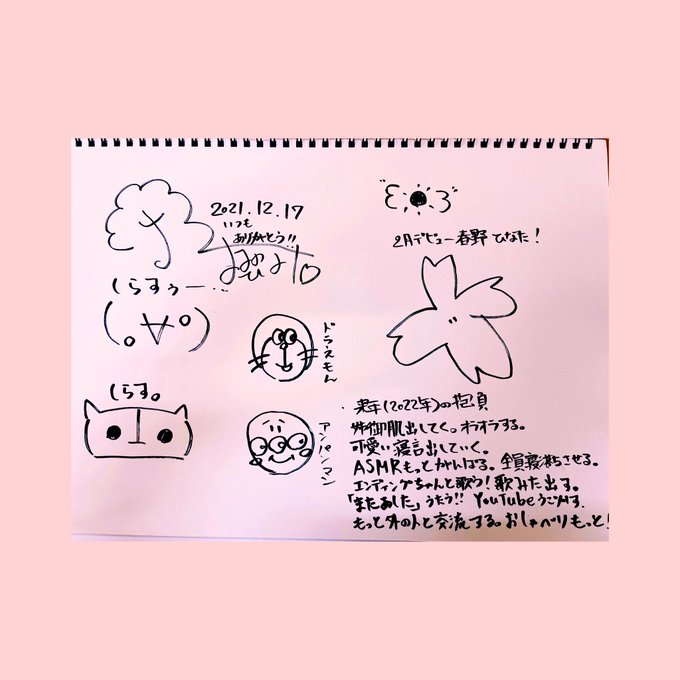 2021.12.17
いつも
ありがとう!!
しらすぅー…
(。∀°)
しらす。
ドラえもん
アンパンマン
2月デビュー春野ひなた!
来年(2022年)の抱負
姉御肌出してく。オラオラする。
可愛い寝言出していく。
ASMRもっとがんばる。全員寝落ちさせる。
エンディングちゃんと歌う!歌みた出す。
「またあした」うたう!! YouTubeうごかす.
もっと外の人と交流する。おしゃべりもっと!